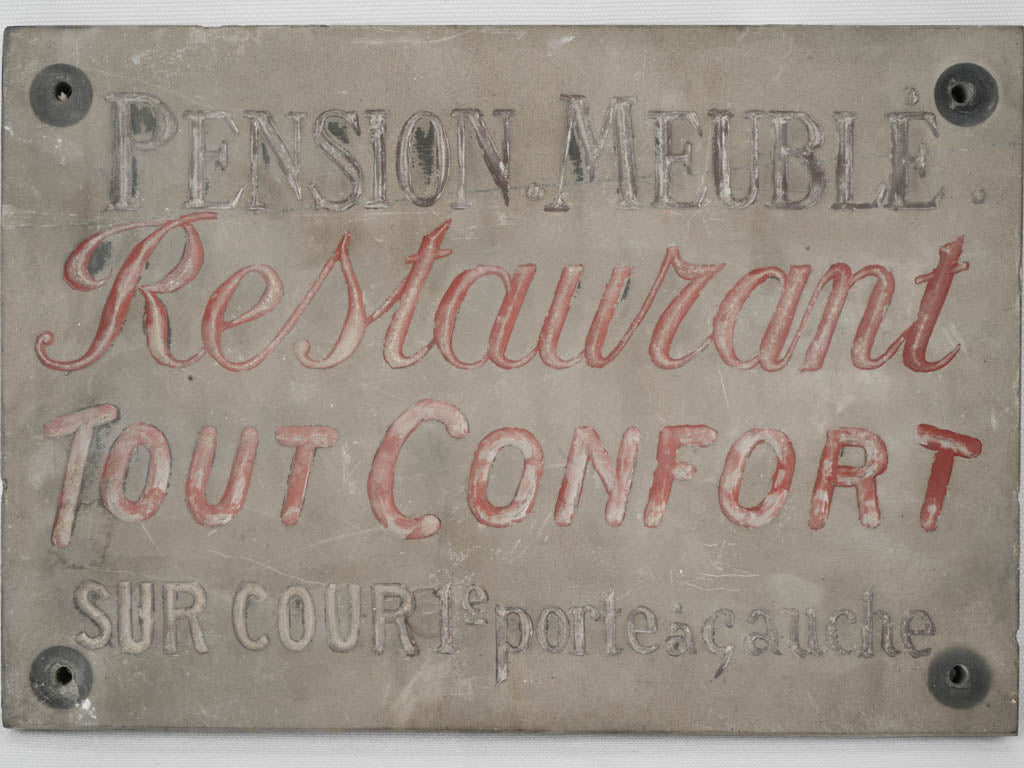 PENSION. MEUBLÉ.
Restaurant
TOUT CONFORT
SUR COUR 1e porte à gauche